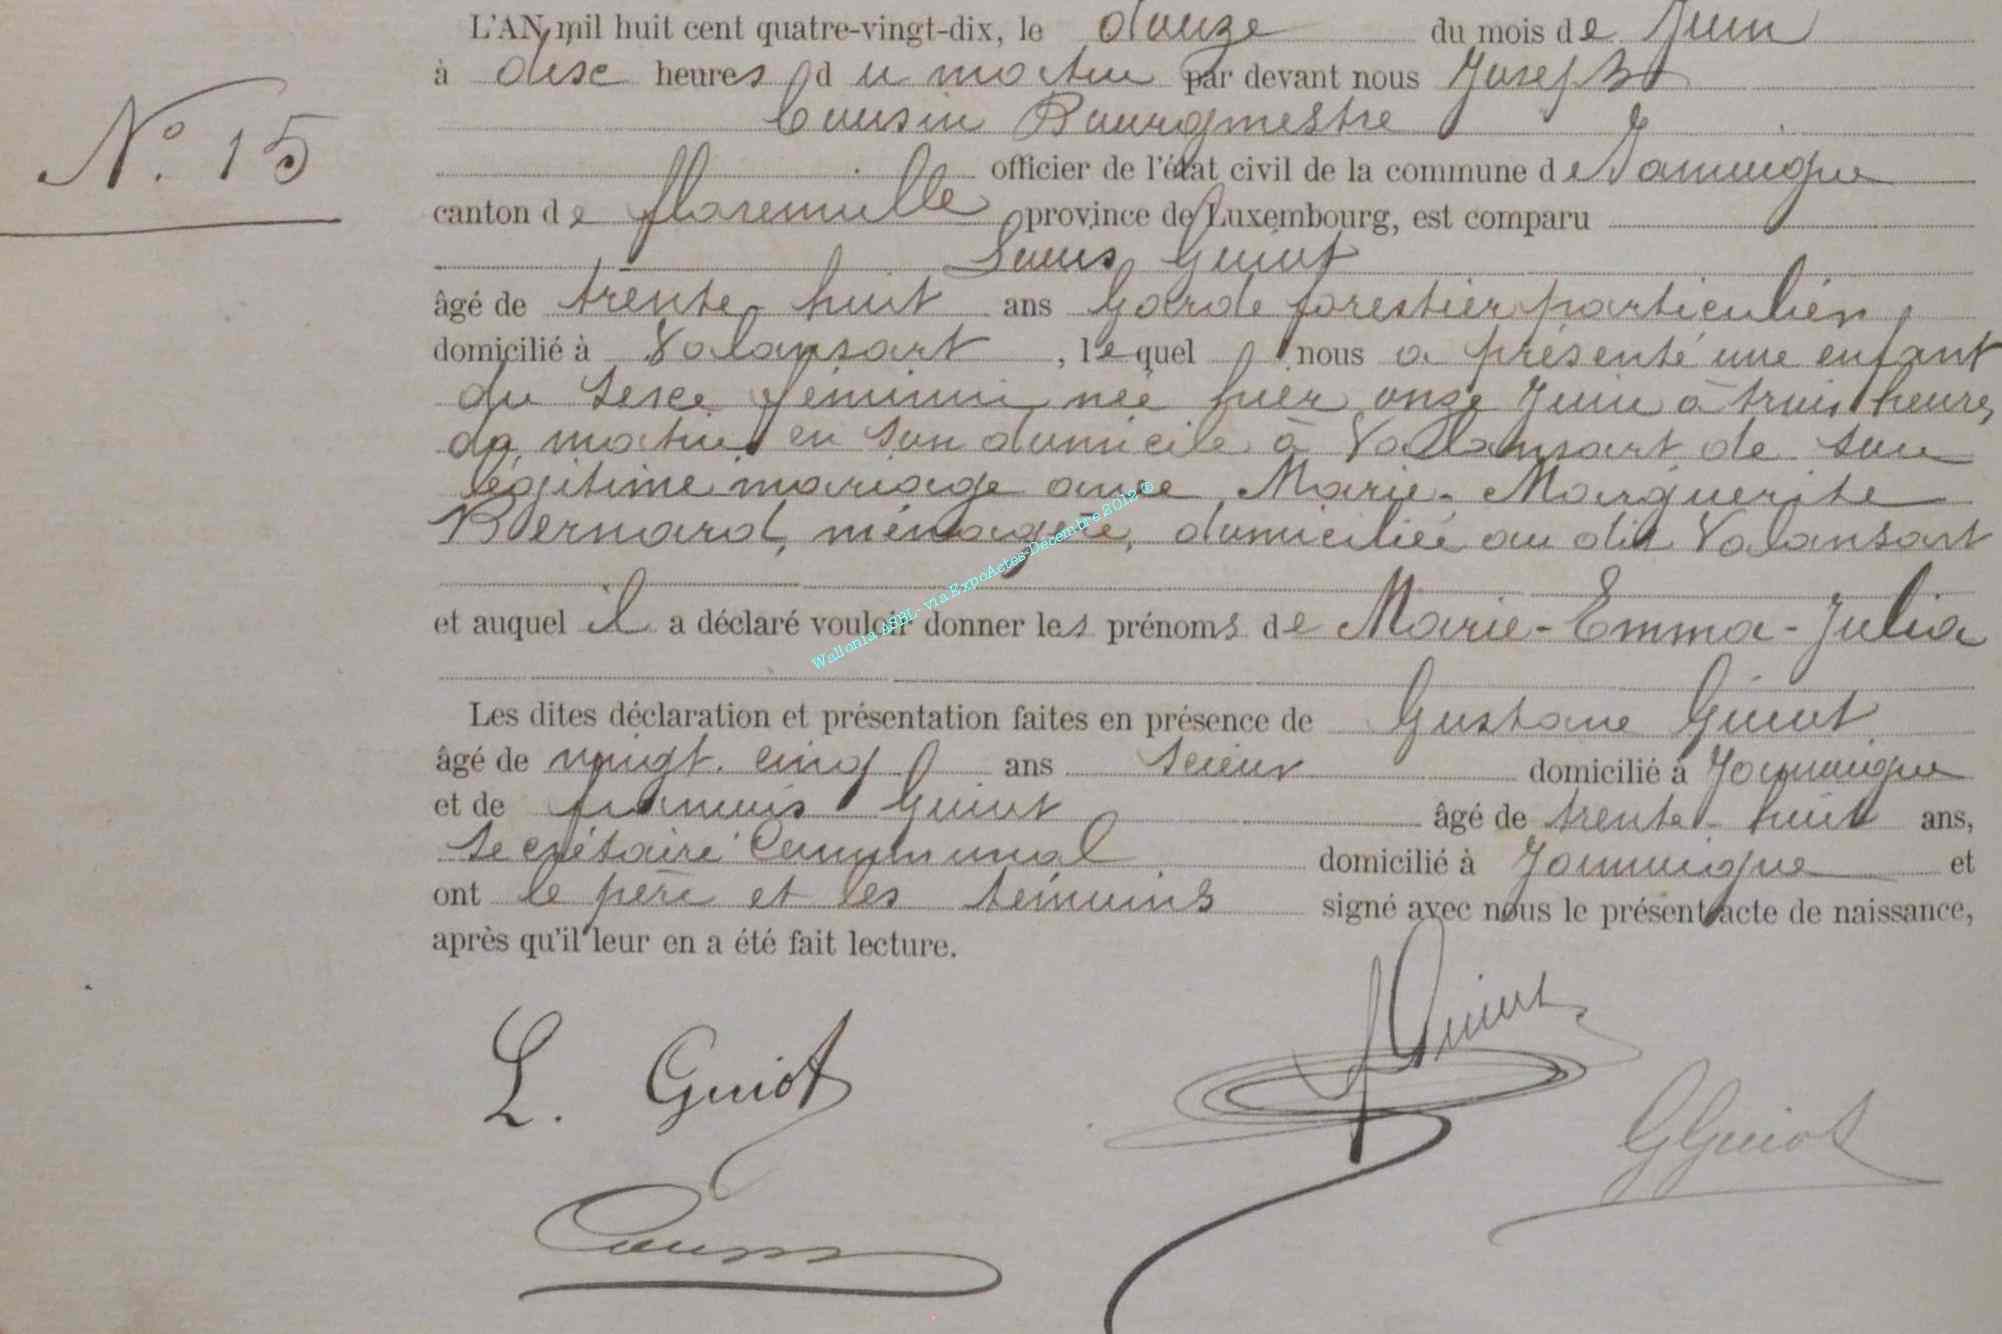 L'AN mil huit cent quatre-vingt-dix, le douze du mois de Juin
N° 15
à dix heures du matin par devant nous Joseph
Cousin Bourgmestre
officier de l'état civil de la commune de Jamoigne
canton de florenville province de Luxembourg, est comparu
Louis Guiot
âgé de trente-huit ans Garde forestier particulier,
domicilié à Valansart, lequel nous a présenté une enfant
du sexe féminin née hier onze Juin à trois heures
du matin en son domicile à Valansart de son
légitime mariage avec Marie-Marguerite
Bernard, ménagère, domiciliée au dit Valansart
et auquel il a déclaré vouloir donner les prénoms de Marie-Emma-Julia
Les dites déclaration et présentation faites en présence de Gustave Guiot
âgé de vingt-cinq ans scieur domicilié à Jamoigne
et de francois Guiot âgé de trente-huit ans,
secrétaire Communal domicilié à Jamoigne et
ont le père et les témoins signé avec nous le présent acte de naissance,
après qu'il leur en a été fait lecture.
Wallonia ASBL - via ExpoActes-Décembre 2012 ©
L. Guiot
f Guiot
GGuiot
Cousin